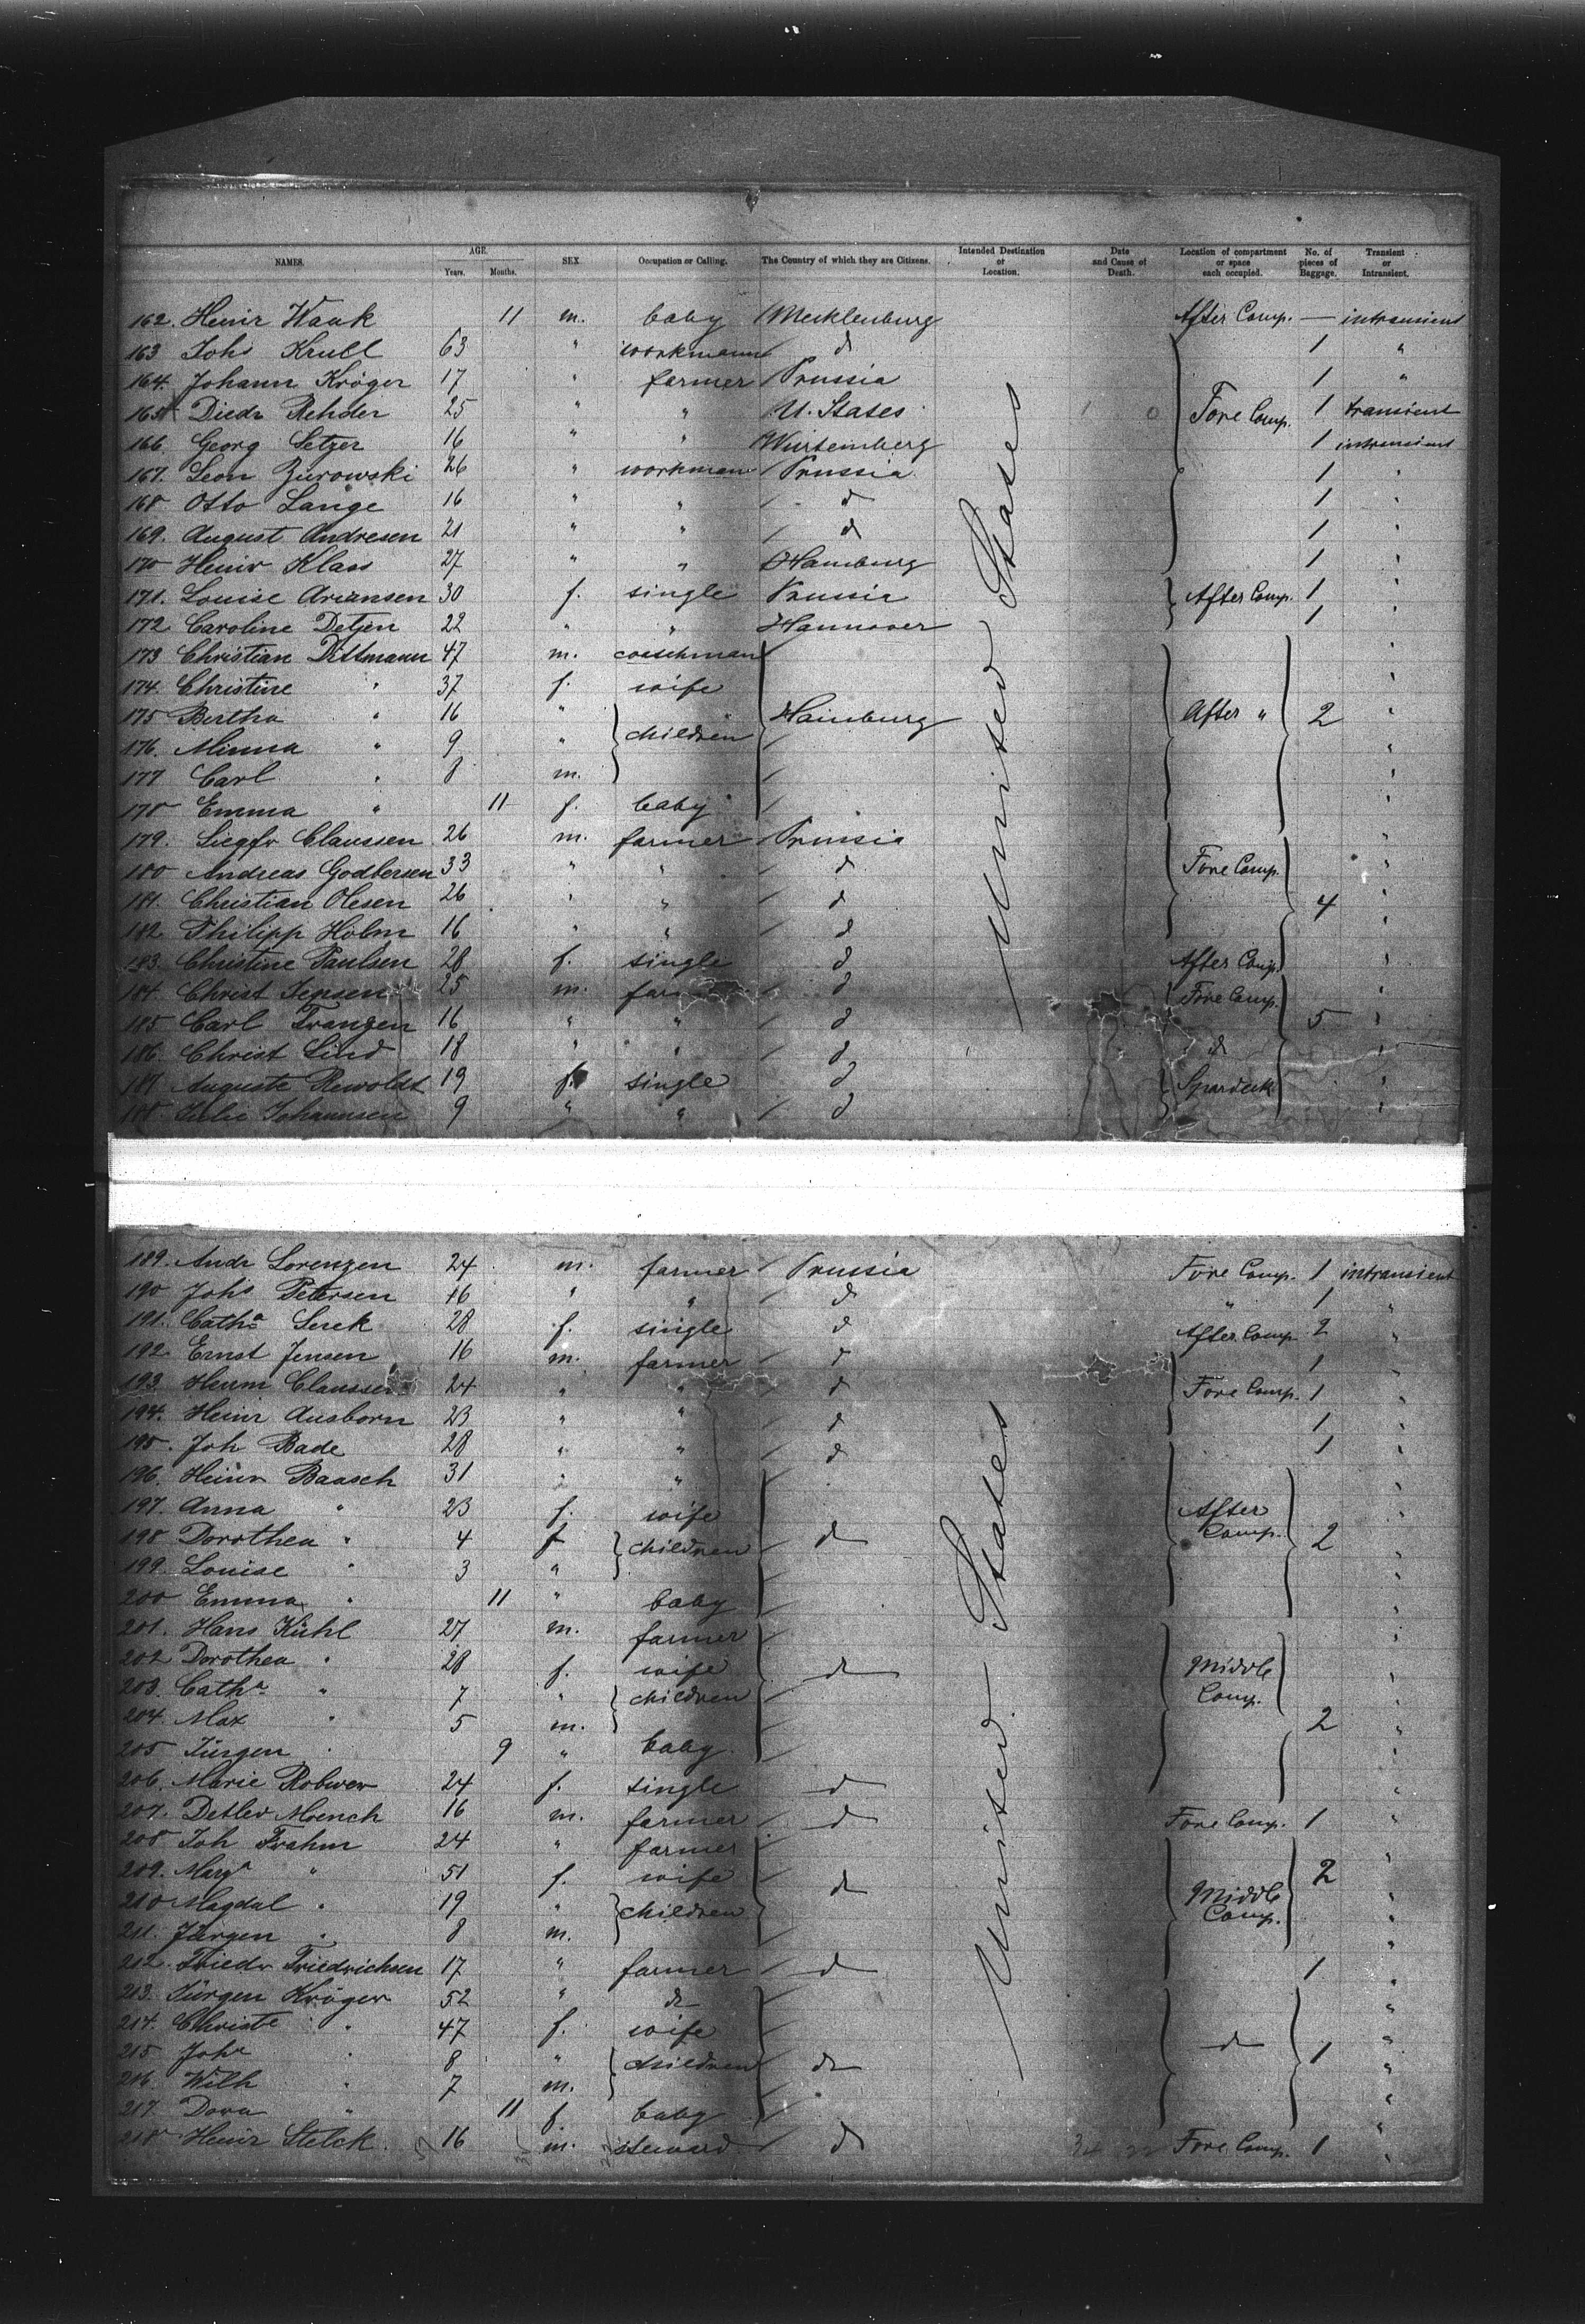 NAMES. AGE. Years. Months. SEX. Occupation or Calling. The Country of which they are Citizens. Intended Destination or Location. Date and Cause of Death. Location of compartment or space each occupied. No. of pieces of Baggage. Transient or Intransient.
162. Heinr Waak 11 m. baby Mecklenburg After Comp. — intransient
163 Johs Krull 63 " workmann d 1 "
164. Johann Kröger 17 " farmer Prussia 1 "
165 Diedr Rehder 25 " " U. States Fore Comp. 1 transient
166. Georg Setzer 16 " " Würtemberg 1 intransient
167. Leon Zurowski 26 " workman Prussia 1 "
168 Otto Lange 16 " " d 1 "
169. August Andresen 21 " " d 1 "
170 Heinr Klass 27 " " Hamburg 1 "
171. Louise Ariansen 30 f. single Prussia After Comp. 1 "
172 Caroline Detjen 22 " " Hannover 1 "
173 Christian Dittmann 47 m. coachman "
174. Christine " 37 f. wife "
175 Bertha " 16 " children Hamburg After " 2 "
176. Minna " 9 " "
177 Carl " 8 m. "
178 Emma " 11 f. baby
179. Siegfr Claussen 26 m. farmer Prussia "
180 Andreas Godbersen 33 " " d Fore Comp. "
181. Christian Olesen 26 " " d 4 "
182 Philipp Holm 16 " " d "
183. Christine Paulsen 28 f. single d After Comp. "
184. Christ Jepsen 25 m. d Fore Comp. "
185 Carl Franzen 16 " " d 5 "
186. Christ Lind 18 " " d d "
187 Auguste Rewoldt 19 f. single d Spardeck "
188 Julie Johannsen 9 " " d "
United States
189. Andr Lorenzen 24 m. farmer Prussia Fore Comp. 1 intransient
190 Johs Petersen 16 " " d " 1 "
191. Catha Serek 28 f. single d After Comp. 2 "
192 Ernst Jensen 16 m. farmer d 1 "
193. Herm Claussen 24 " " d Fore Comp. 1 "
194. Heinr Ausborn 23 " " d 1 "
195. Joh Bade 28 " " d 1 "
196. Heinr Baasch 31 " " "
197. Anna " 23 f. wife After "
198 Dorothea " 4 f children d Comp. 2 "
199. Louise " 3 " "
200 Emma " 11 " baby "
201. Hans Kühl 27 m. farmer "
202 Dorothea " 28 f. wife d Middle "
203. Catha " 7 " children Comp. "
204. Max " 5 m. 2 "
205 Jürgen " 9 " baby "
206. Marie Rohwer 24 f. single d "
207. Detlev Moench 16 m. farmer d Fore Comp. 1 "
208 Joh Frahm 24 " farmer "
209. Marga " 51 f. wife 2
210 Magdal " 19 " children d Middle Comp. "
211. Jürgen " 8 m. "
212. Friedr Friedrichsen 17 " farmer d 1 "
213. Jürgen Kröger 52 " d "
214. Christe " 47 f. wife d "
215 Joha " 8 " children d 1 "
216. Wilh " 7 m. "
217. Dora " 11 f. baby "
218 Heinr Stelck 16 m. steward d Fore Comp. 1 "
United States